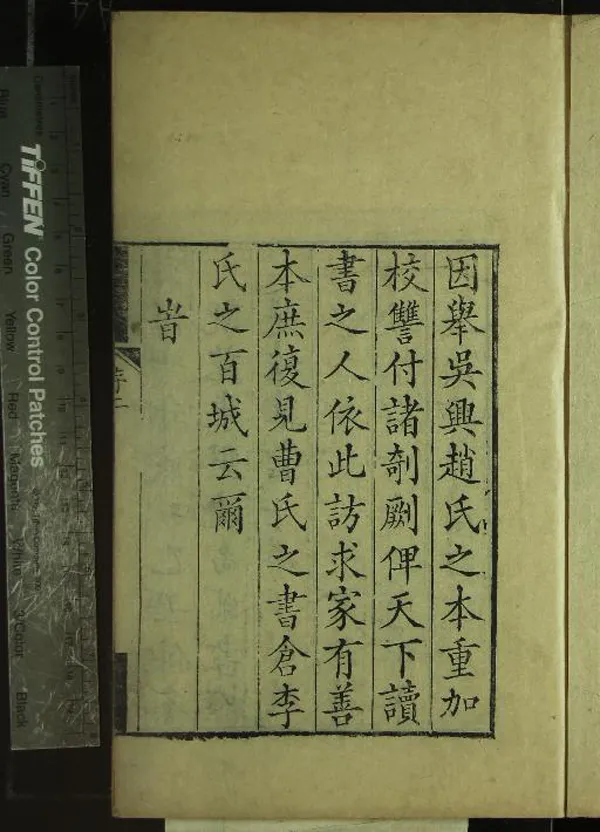 因舉吳興趙氏之本重加
校讐付諸剞劂俾天下讀
書之人依此訪求家有善
本庶復見曹氏之書倉李
氏之百城云爾
旹
TIFFEN Color Control Patches
Blue
Cyan
Green
Yellow
Red
Magenta
White
3/Color
Black